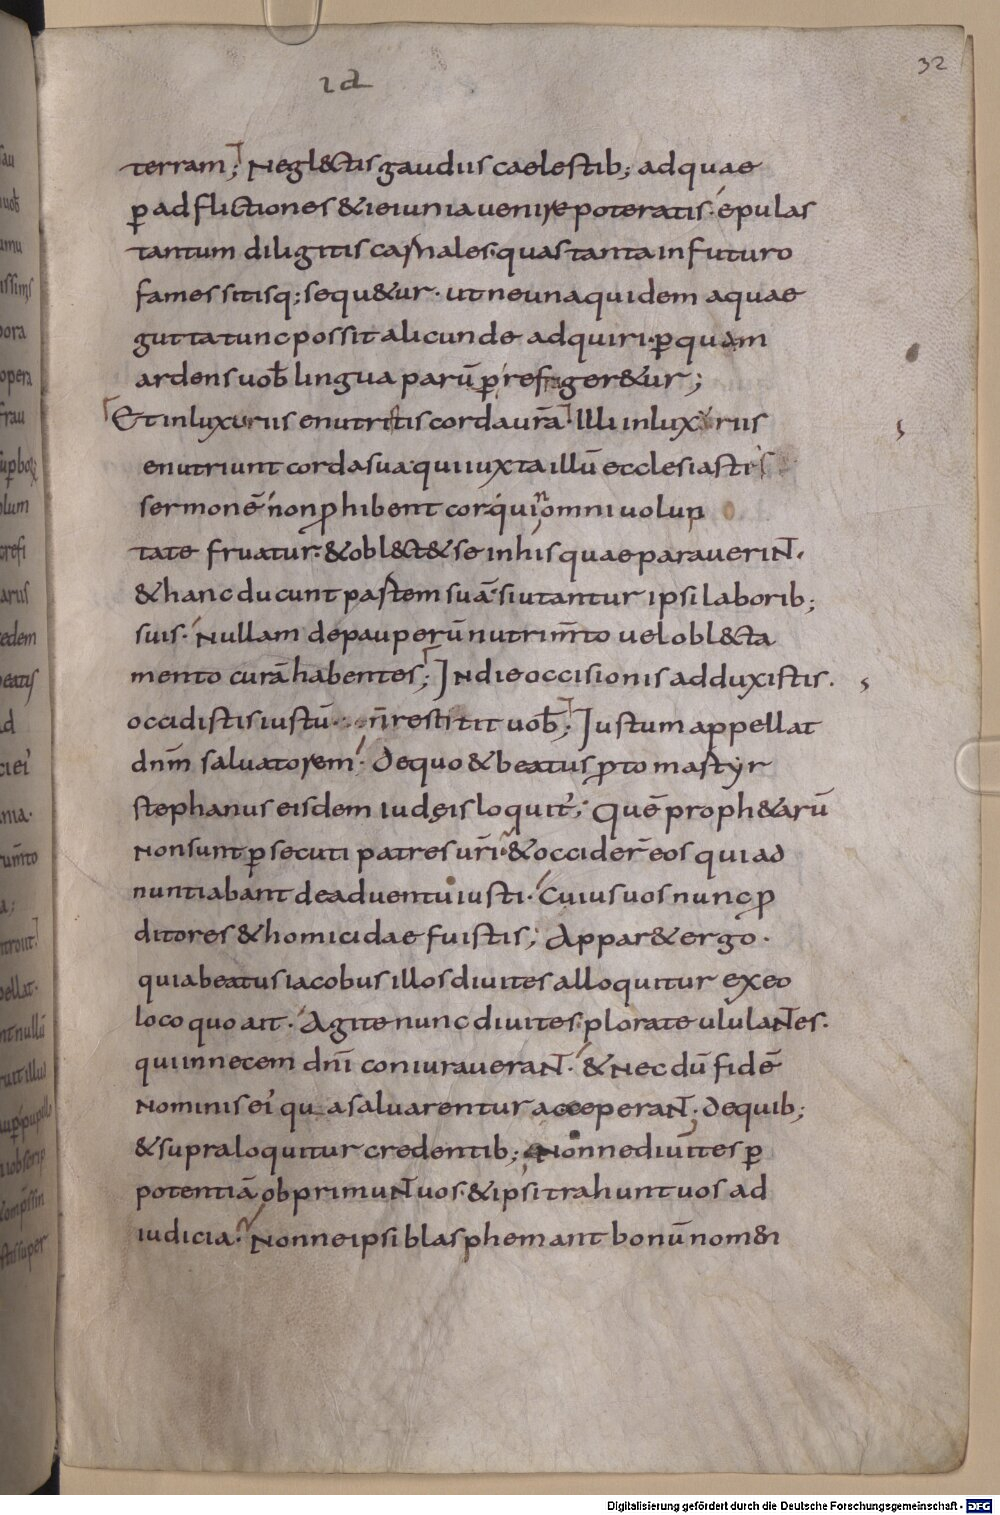 ia
32
terram; Negl&ctis gaudiis caelestib; ad quae
p̱ adflictiones & ieiunia uenire poteratis· epulas
tantum diligitis carnales· quas tanta in futuro
fames sitisq; sequ&ur· ut ne una quidem aquae
gutta tunc possit alicunde adquiri· p̱ quam
ardens uob̄ lingua parū p̱ refriger&ur;
Et in luxuriis enutritis corda urā· Illi in luxuriis
enutriunt corda sua· qui iuxta illū ecclesiasti
sermonē non p̱hibent cor· quin omni uolup
tate fruatur· & obl&ct& se in his quae paraueriNT·
& hanc ducunt partem suā· si utantur ipsi laborib;
suis· Nullam de pauperū nutrim̄to uel obl&cta
mento curā habentes; In die occisionis adduxistis·
occidistis iustū· n̄ restitit uob̄; Iustum appellat
dnm̄ saluatorem· De quo & beatus p̱tomartyr
stephanus eisdem iudęis loquit'; Quē proph&arū
Non sunt p̱secuti patres ur̄i· & occider̄ eos qui ad
nuntiabant de aduentu iusti· Cuius uos nunc p̱
ditores & homicidae fuistis; Appar& ergo·
quia beatus iacobus illos diuites alloquitur ex eo
loco quo ait· Agite nunc diuites· plorate ululaNTes·
qui in necem dnī coniuraueraNT· & Nec dū fidē
Nominis ei' qua saluarentur acceperaNT· De quib;
& supra loquitur credentib; Nonne diuites p̱
potentiā obprimuNT uos· & ipsi trahunt uos ad
iudicia· Nonne ipsi blasphemant bonū nom&n
Digitalisierung gefördert durch die Deutsche Forschungsgemeinschaft - DFG